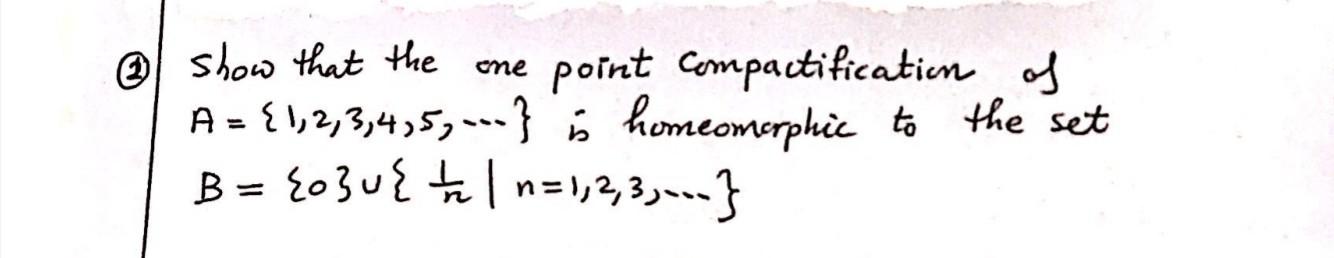 ② Show that the one point Compactification of
A = {1,2,3,4,5,---} is homeomorphic to the set
B = {0}∪{ 1/n | n=1,2,3,---}